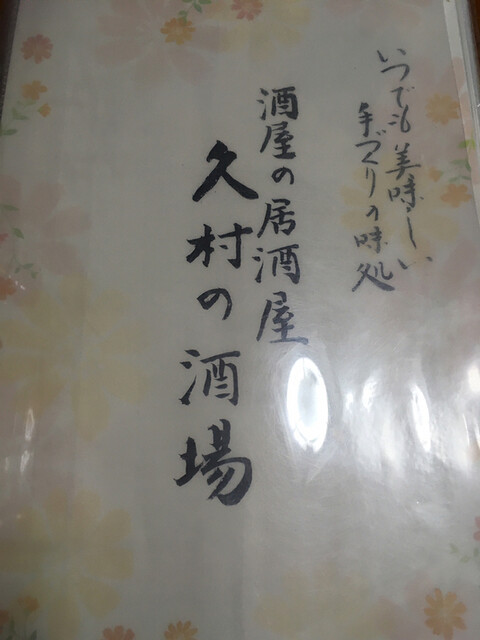 いつでも美味しい
手づくりの味処
酒屋の居酒屋
久村の酒場